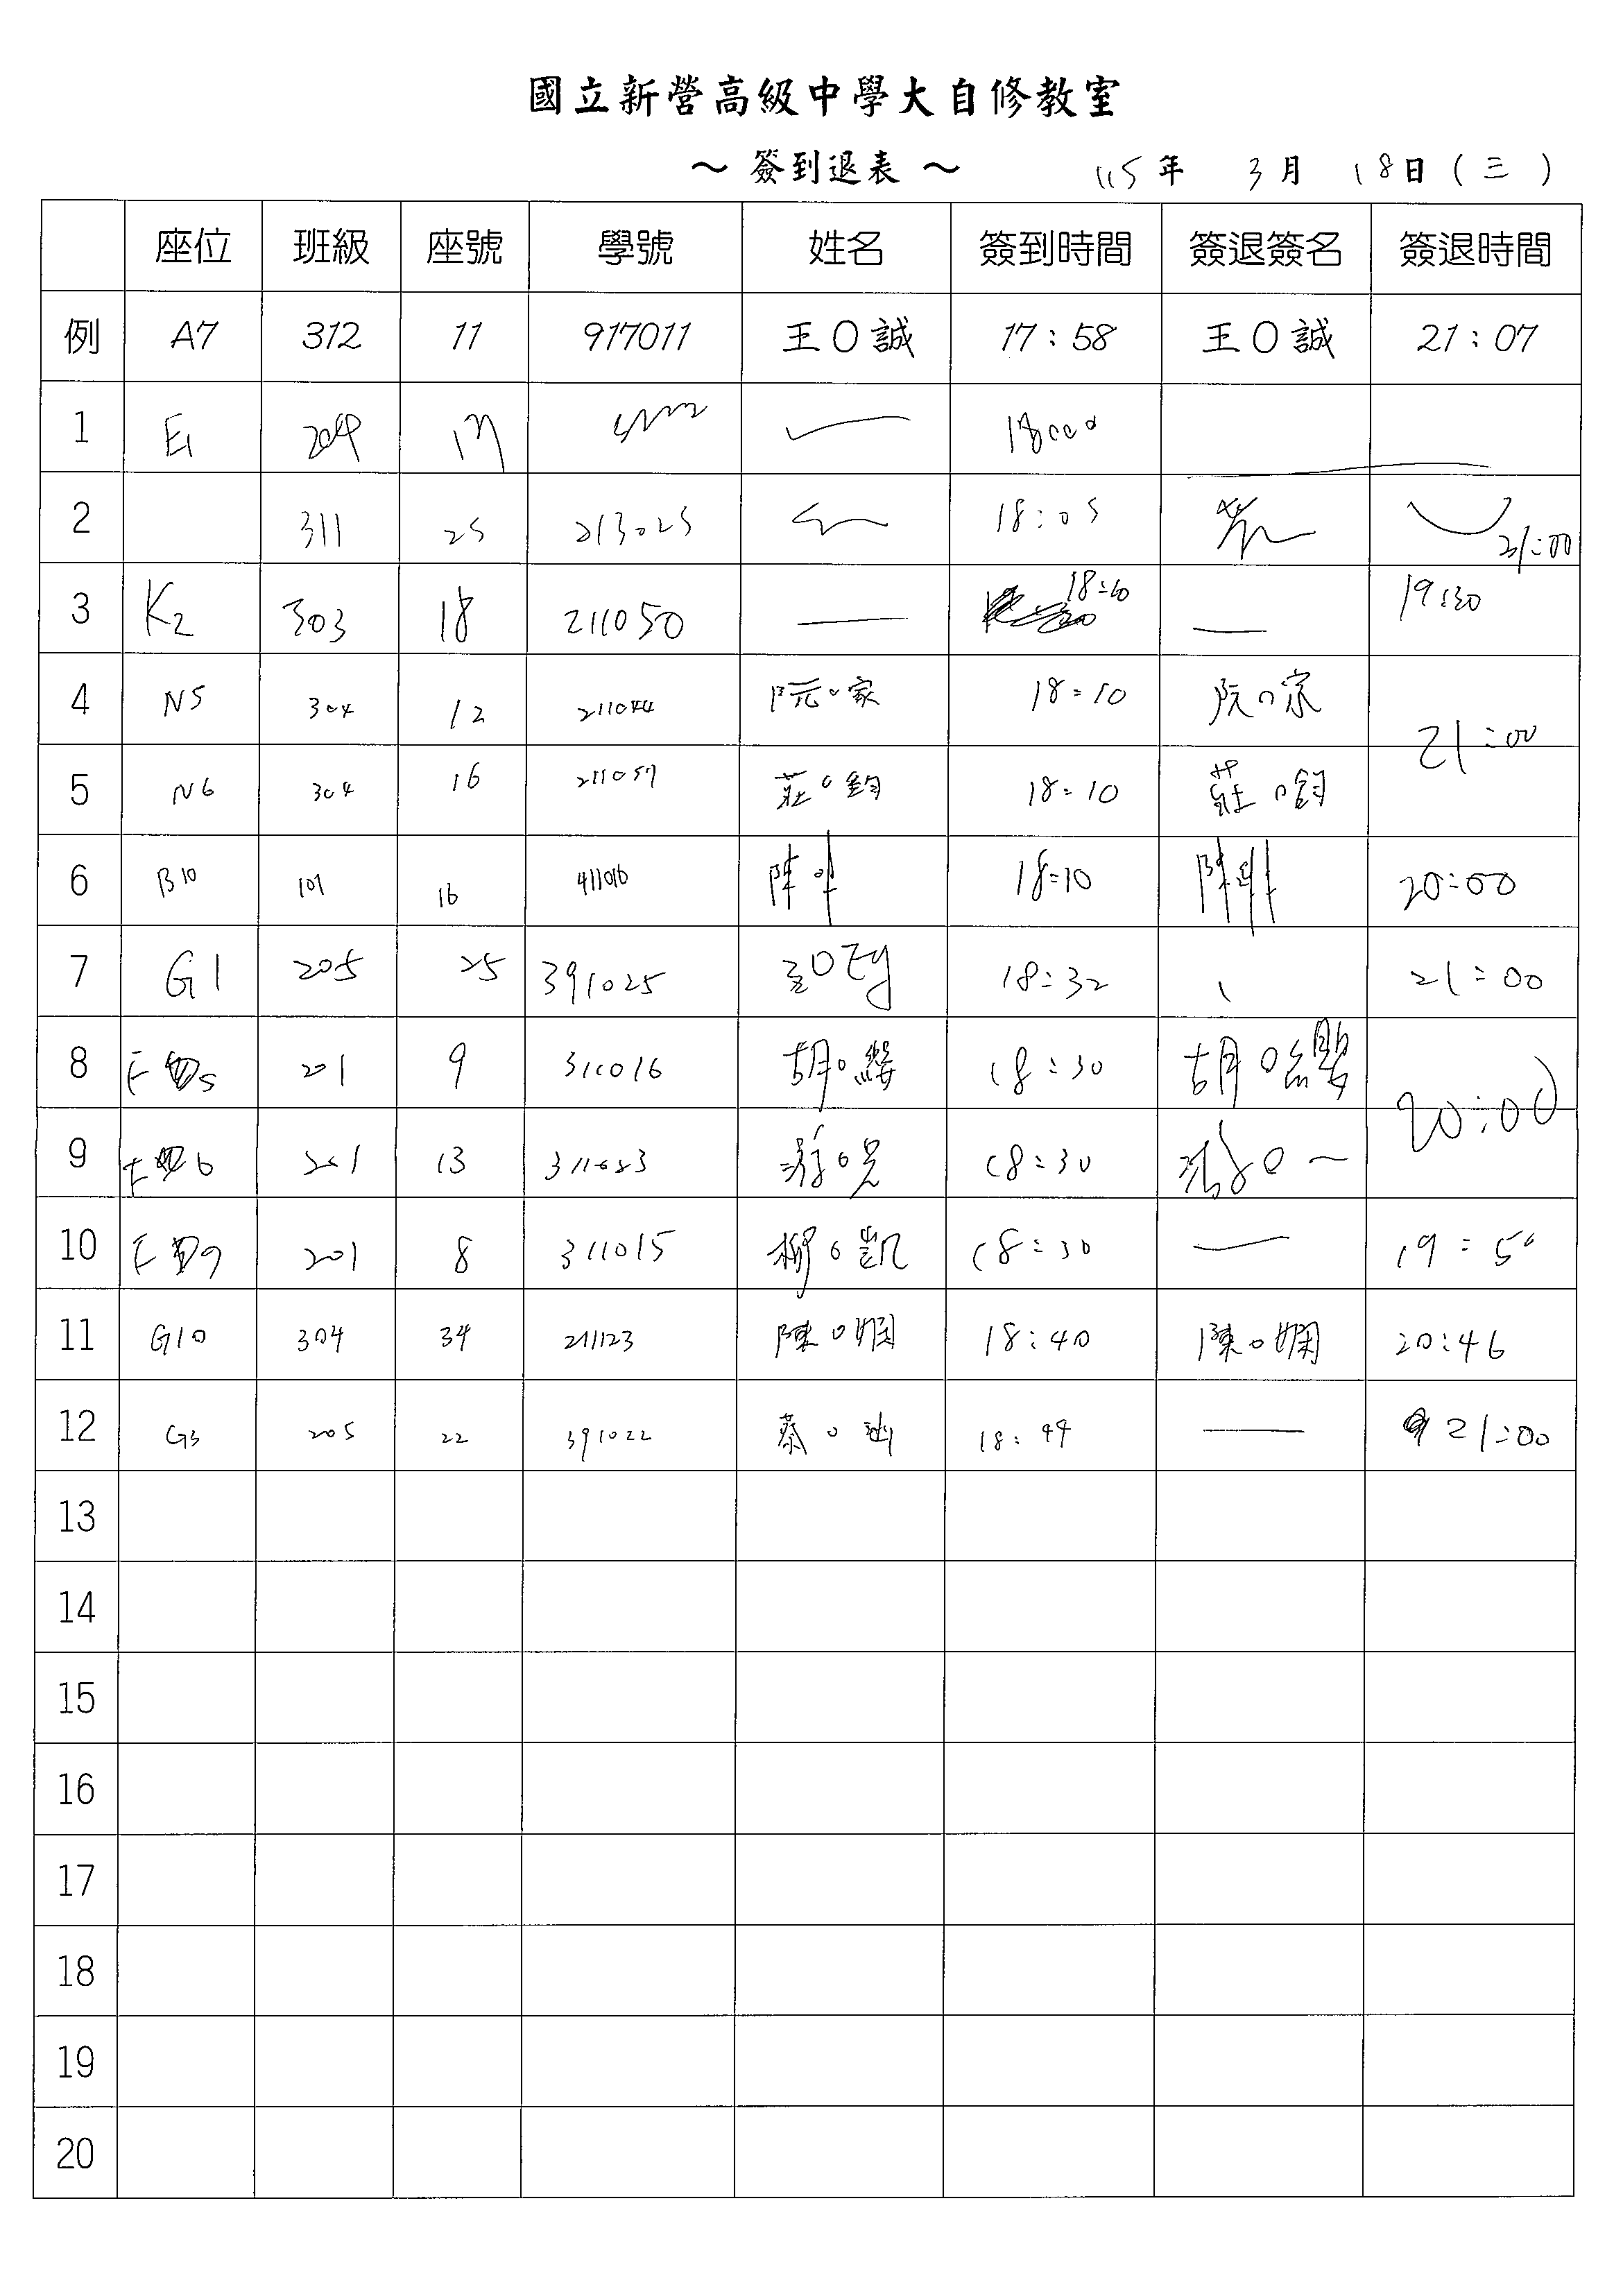 國立新營高級中學大自修教室
～ 簽到退表 ～ 115年 3月 18日(三)
座位 班級 座號 學號 姓名 簽到時間 簽退簽名 簽退時間
例 A7 312 11 917011 王O誠 17:58 王O誠 21:07
1 E1 204 17
2 311 25 213025 18:05 21:00
3 K2 303 18 211050 18:10 19:30
4 N5 304 12 211044 阮O家 18:10 阮O家 21:00
5 N6 304 16 211057 莊O鈞 18:10 莊O鈞
6 B10 101 16 411016 陳 18:10 陳 20:00
7 G1 205 25 391025 18:32 21:00
8 E5 201 9 311016 胡O纓 18:30 胡O纓 20:00
9 E6 201 13 311023 游O 18:30 游O
10 E 201 8 311015 柳O凱 18:30 19:50
11 G10 304 34 211123 陳O嫻 18:40 陳O嫻 20:46
12 G3 205 22 391022 蔡O 18:49 21:00
13
14
15
16
17
18
19
20